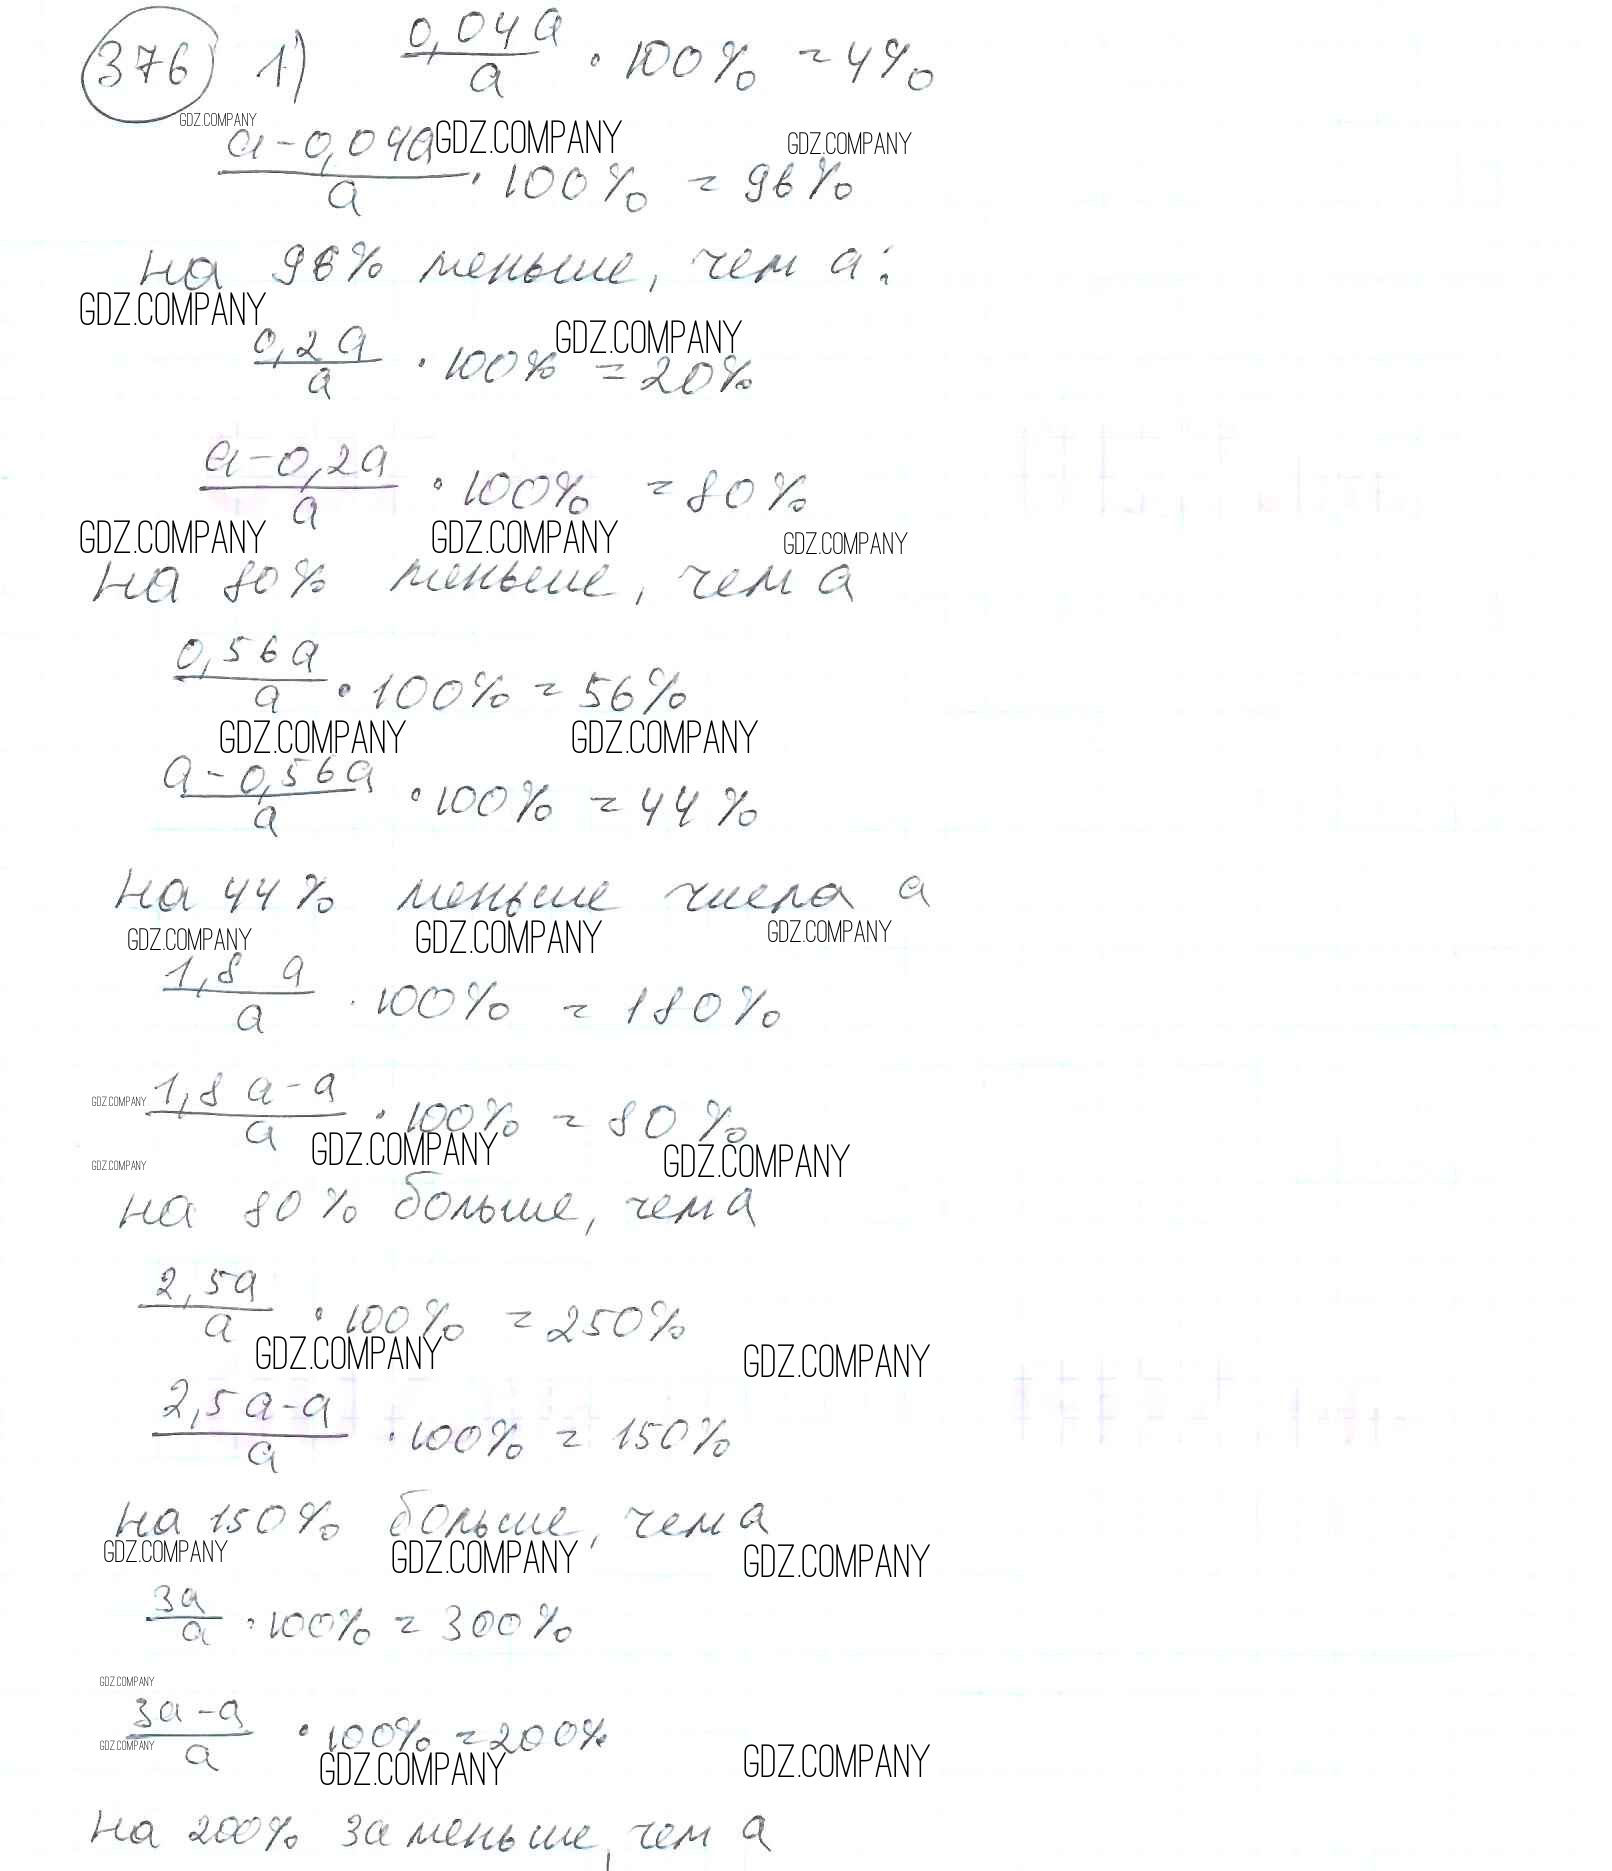 376 1) 0,04a/a · 100% = 4%
GDZ.COMPANY
a-0,04a/a · 100% = 96%
GDZ.COMPANY GDZ.COMPANY
на 96% меньше, чем a:
GDZ.COMPANY GDZ.COMPANY
0,2a/a · 100% = 20%
a-0,2a/a · 100% = 80%
GDZ.COMPANY GDZ.COMPANY GDZ.COMPANY
на 80% меньше, чем a
0,56a/a · 100% = 56%
GDZ.COMPANY GDZ.COMPANY
a-0,56a/a · 100% = 44%
на 44% меньше числа a
GDZ.COMPANY GDZ.COMPANY GDZ.COMPANY
1,8 a/a · 100% = 180%
GDZ.COMPANY
1,8 a-a/a · 100% = 80%
GDZ.COMPANY GDZ.COMPANY
GDZ.COMPANY
на 80% больше, чем a
2,5a/a · 100% = 250%
GDZ.COMPANY GDZ.COMPANY
2,5a-a/a · 100% = 150%
на 150% больше, чем a
GDZ.COMPANY GDZ.COMPANY GDZ.COMPANY
3a/a · 100% = 300%
GDZ.COMPANY
3a-a/a · 100% = 200%
GDZ.COMPANY
GDZ.COMPANY GDZ.COMPANY
на 200% за меньше, чем a